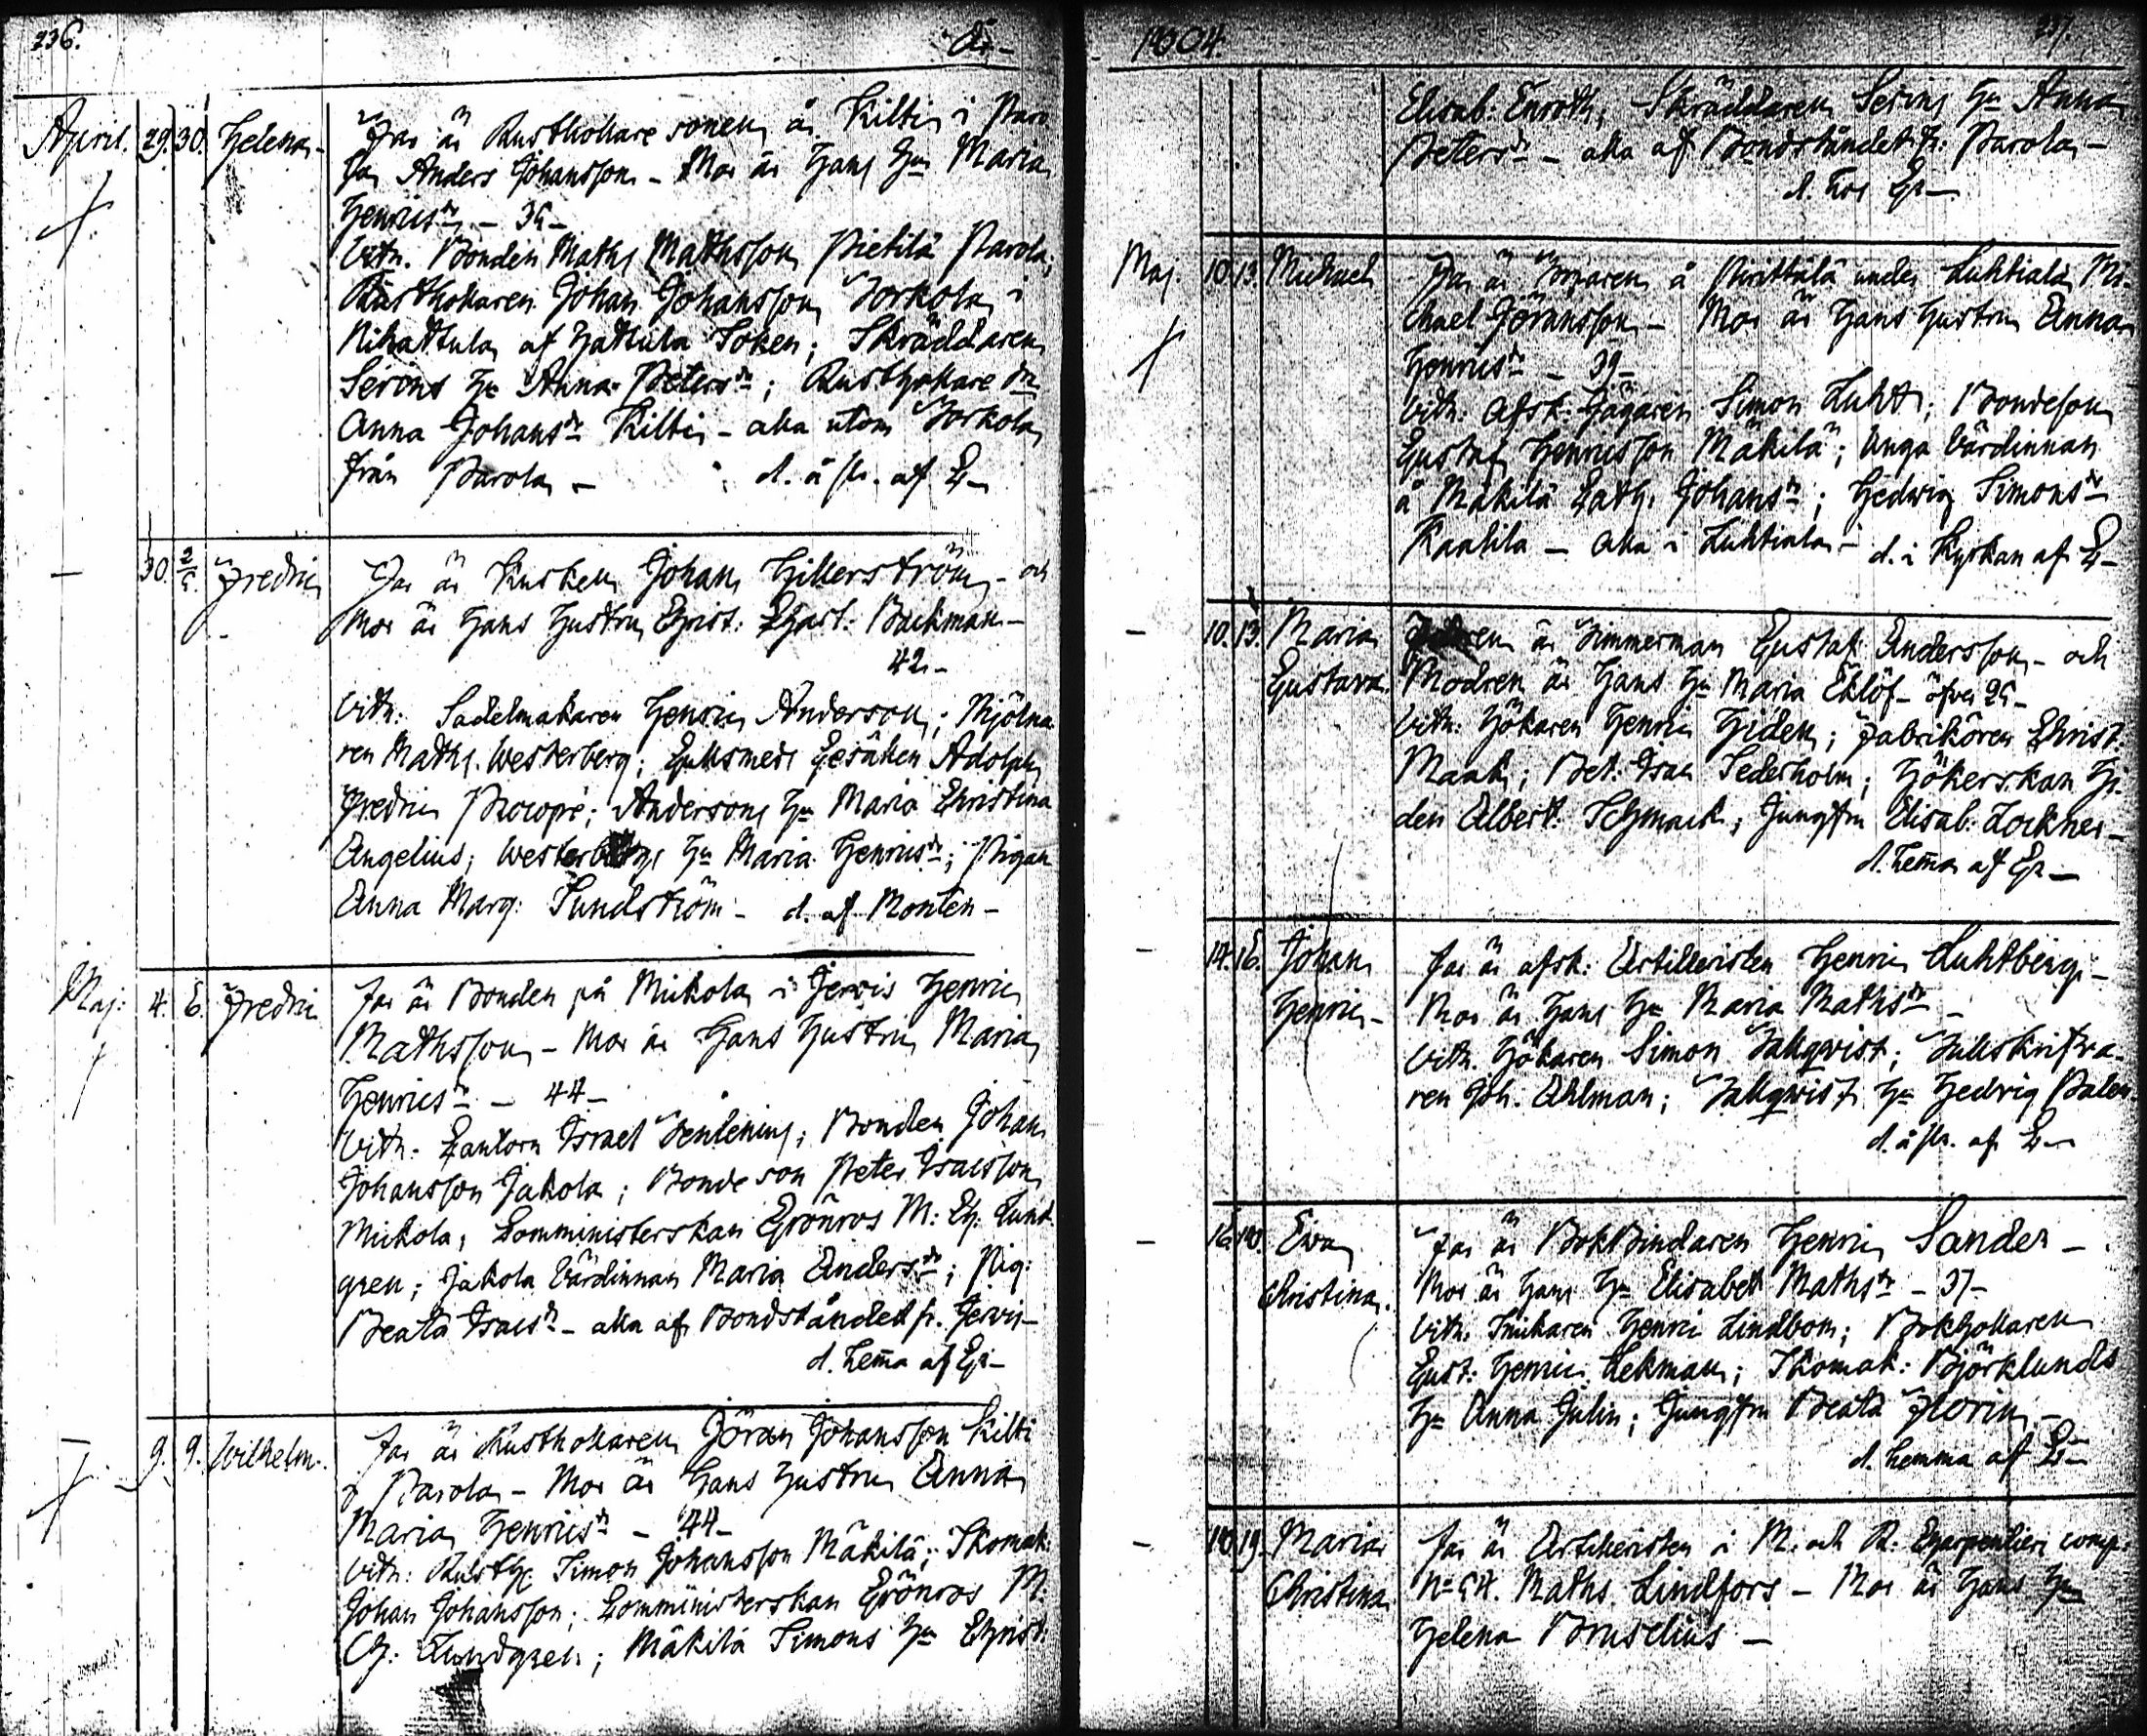 236.
År
April. 29. 30. Helena. Far är Rusthollare sonen å Kilti i Paro
la Anders Johansson - Mor är Hans Hu Maria
Henricsdr - 35 -
Vitn. Bonden Maths Mathsson Pietilä Parola;
Rusthollaren Johan Johansson Jorkola i
Nihattula af Hattula Soken; Skräddaren
Serins Hu Anna Petersdr; Rusthollare dr
Anna Johansdr Kilti - alla utom Jorkola
från Parola - d. å st. af
- 30. 2/5. Fredric Far är Kusken Johan Hillerström - och
Mor är Hans Hustru Christ. Charl. Backman -
42 -
Vitn: Sadelmakaren Henric Anderson; Mjölna
ren Maths. Westerberg; Gullsmeds Gesällen Adolph
Fredric Procopé; Andersons Hu Maria Christina
Angelius; Westerbergs Hu Maria Henricsdr; Pigan
Anna Marg: Sundström - d. af Monten -
Maj: 4. 6. Fredric Far är Bonden på Mickola i Jervis Henric
Mathsson - Mor är Hans Hustru Maria
Henricsdr - 44 -
Vitn. Cantorn Israel Wenlenius; Bonden Johan
Johansson Jakola; Bonde son Peter Isacsson
Mickola, Comministerskan Grönros M: Ch: Lund-
gren; Jakola Värdinnan Maria Andersdr; Pig:
Beata Isacsdr - alla af Bondståndet fr. Jervis -
d. hemma af Gr -
- 9. 9. Wilhelm. Far är Rusthollaren Jöran Johansson Kilti
i Parola - Mor är Hans Hustru Anna
Maria Henricsdr - 44 -
Vitn: Rusth. Simon Johansson Mäkilä; Skomak:
Johan Johansson; Comministerskan Grönros M.
Ch: Lundgren; Mäkilä Simons Hu Christ:
1804.
237.
Elisab: Enroth; Skräddaren Serins Hu Anna
Petersdr - alla af Bondståndet fr. Parola -
d. hos Gr -
Maj. 10. 13. Michael Far är å Pirittälä under Luhtiala Mi-
chael Göransson - Mor är Hans Hustru Anna
Henricsdr - 39 -
Vitn: Afsk. Jägaren Simon Luht; Bondeson
Gustaf Henricsson Mäkilä; Unga Värdinnan
å Mäkilä Cath. Johansdr; Hedwig Simonsdr
Kaalila - Alla i Luhtiala - d. i Kyrkan af
- 10. 13. Maria Fadren är Timmerman Gustaf Andersson - och
Gustava. Modren är Hans Hu Maria Eklöf - öfver 25 -
Vitn: Hökaren Henric Hiden; Fabrikören Christ.
Maak; Bet: Isac Sederholm; Hökerskan Hi-
den Albert: Schmack; Jungfru Elisab: Lockner -
d. hemma af Gr -
- 14. 16. Johan Far är afsk: Artilleristen Henric Luhtberg -
Henric - Mor är Hans Hu Maria Mathsdr -
Vitn. Hökaren Simon Tallqvist; Tullskrifva-
ren Joh. Ahlman; Tallqvists Hu Hedvig Palen
d. å st. af
- 16. 18. Ewa Far är BokBindaren Henric Sander -
Christina. Mor är Hans Hu Elisabet Mathsdr - 37 -
Vitn: Snikaren Henric Lindbom; Bokhollaren
Gust: Henric Hekman; Skomak: Björklunds
Hu Anna Julin; Jungfru Beata Florin -
d. hemma af
- 18. 19. Maria Far är Artilleristen i M. och R. Charpentiers comp.
Christina No 54. Maths Lindfors - Mor är Hans Hu
Helena Bruselius -